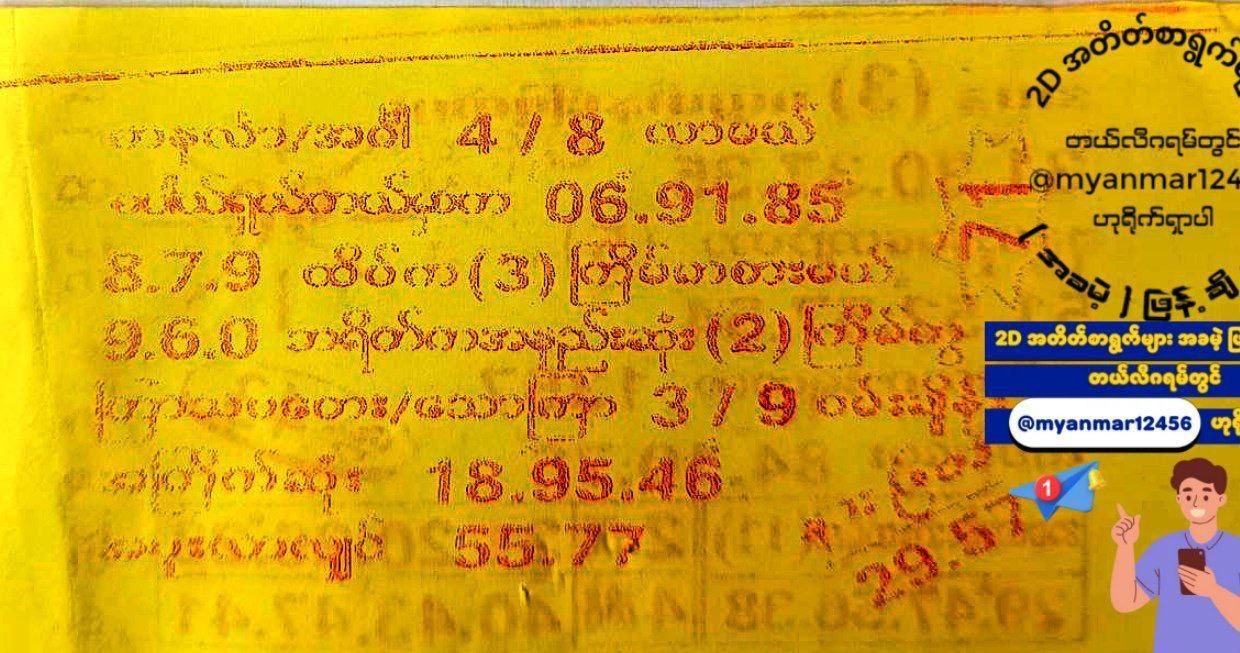 တနင်္လာ/အင်္ဂါ 4 / 8 လာမယ်
ပါယ်ရွယ်တယ်မှတ်က 06.91.85
8.7.9 ထိပ်က (3) ကြိမ်မာစားမယ်
9.6.0 ဘရိတ်ကအနည်းဆုံး (2) ကြိမ်
ကြာသပတေး/သောကြာ 3 / 9 ဝမ်း
အကြိုက်ဆုံး 18.95.46
55.77
71
29.57
2D အတိတ်စာရွက်
တယ်လီဂရမ်တွင်
@myanmar124
ဟုရိုက်ရှာပါ
အခမဲ့ / ဖြန့်
2D အတိတ်စာရွက်များ အခမဲ့
တယ်လီဂရမ်တွင်
@myanmar12456
1